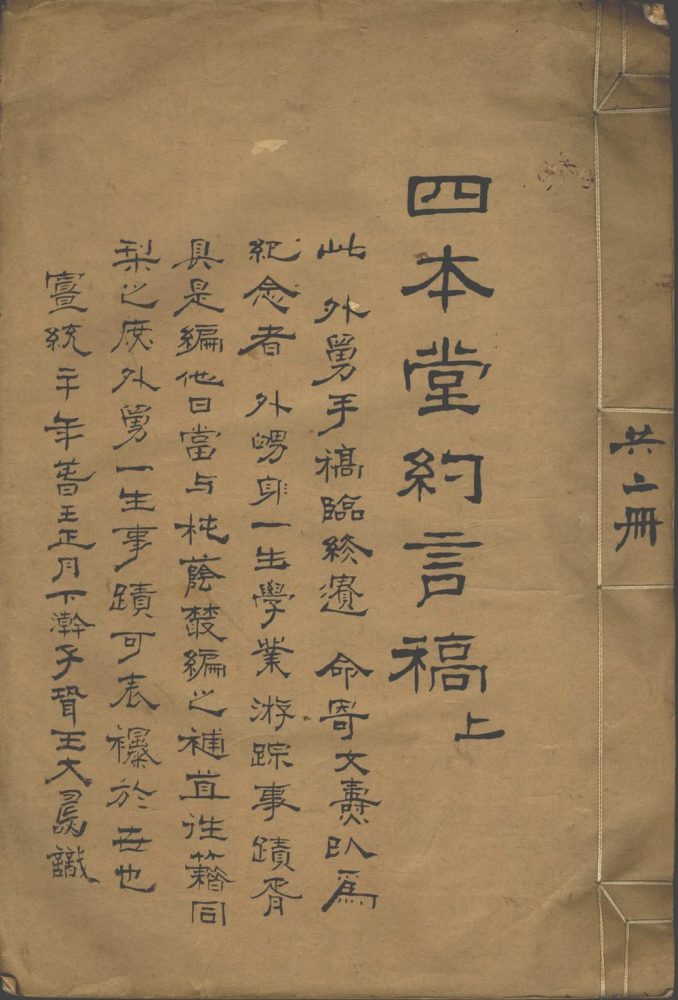 共二冊
四本堂約言稿 上
此 外舅手稿臨終遺 命寄文燾以爲
紀念者 外甥身一生學業游踪事蹟胥
具是編他日當与枕蔭叢編之補苴詮籍同
梨之庶外舅一生事蹟可表襮於世也
宣統二年春王正月下澣子壻王大 識